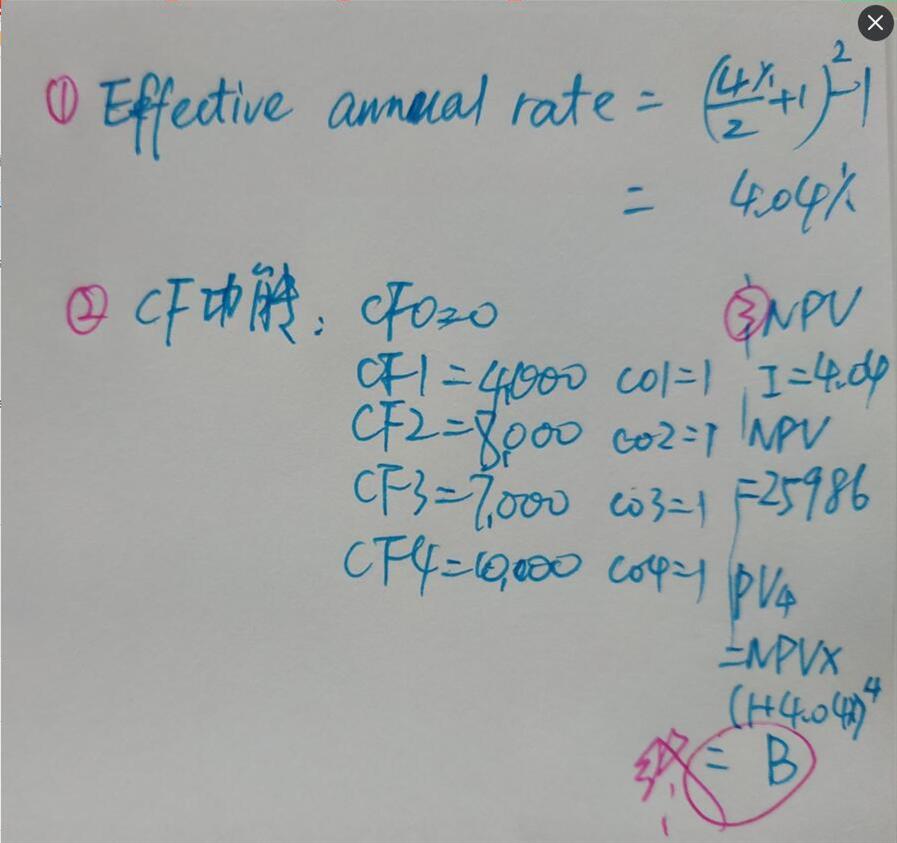 ① Effective annual rate = (4%/2+1)²-1
= 4.04%
② CF功能: CF0=0
CF1=4,000 C01=1
CF2=8,000 C02=1
CF3=7,000 C03=1
CF4=10,000 C04=1
③ NPV
I=4.04
NPV
=25986
PV4
=NPV×
(1+4.04%)⁴
= B